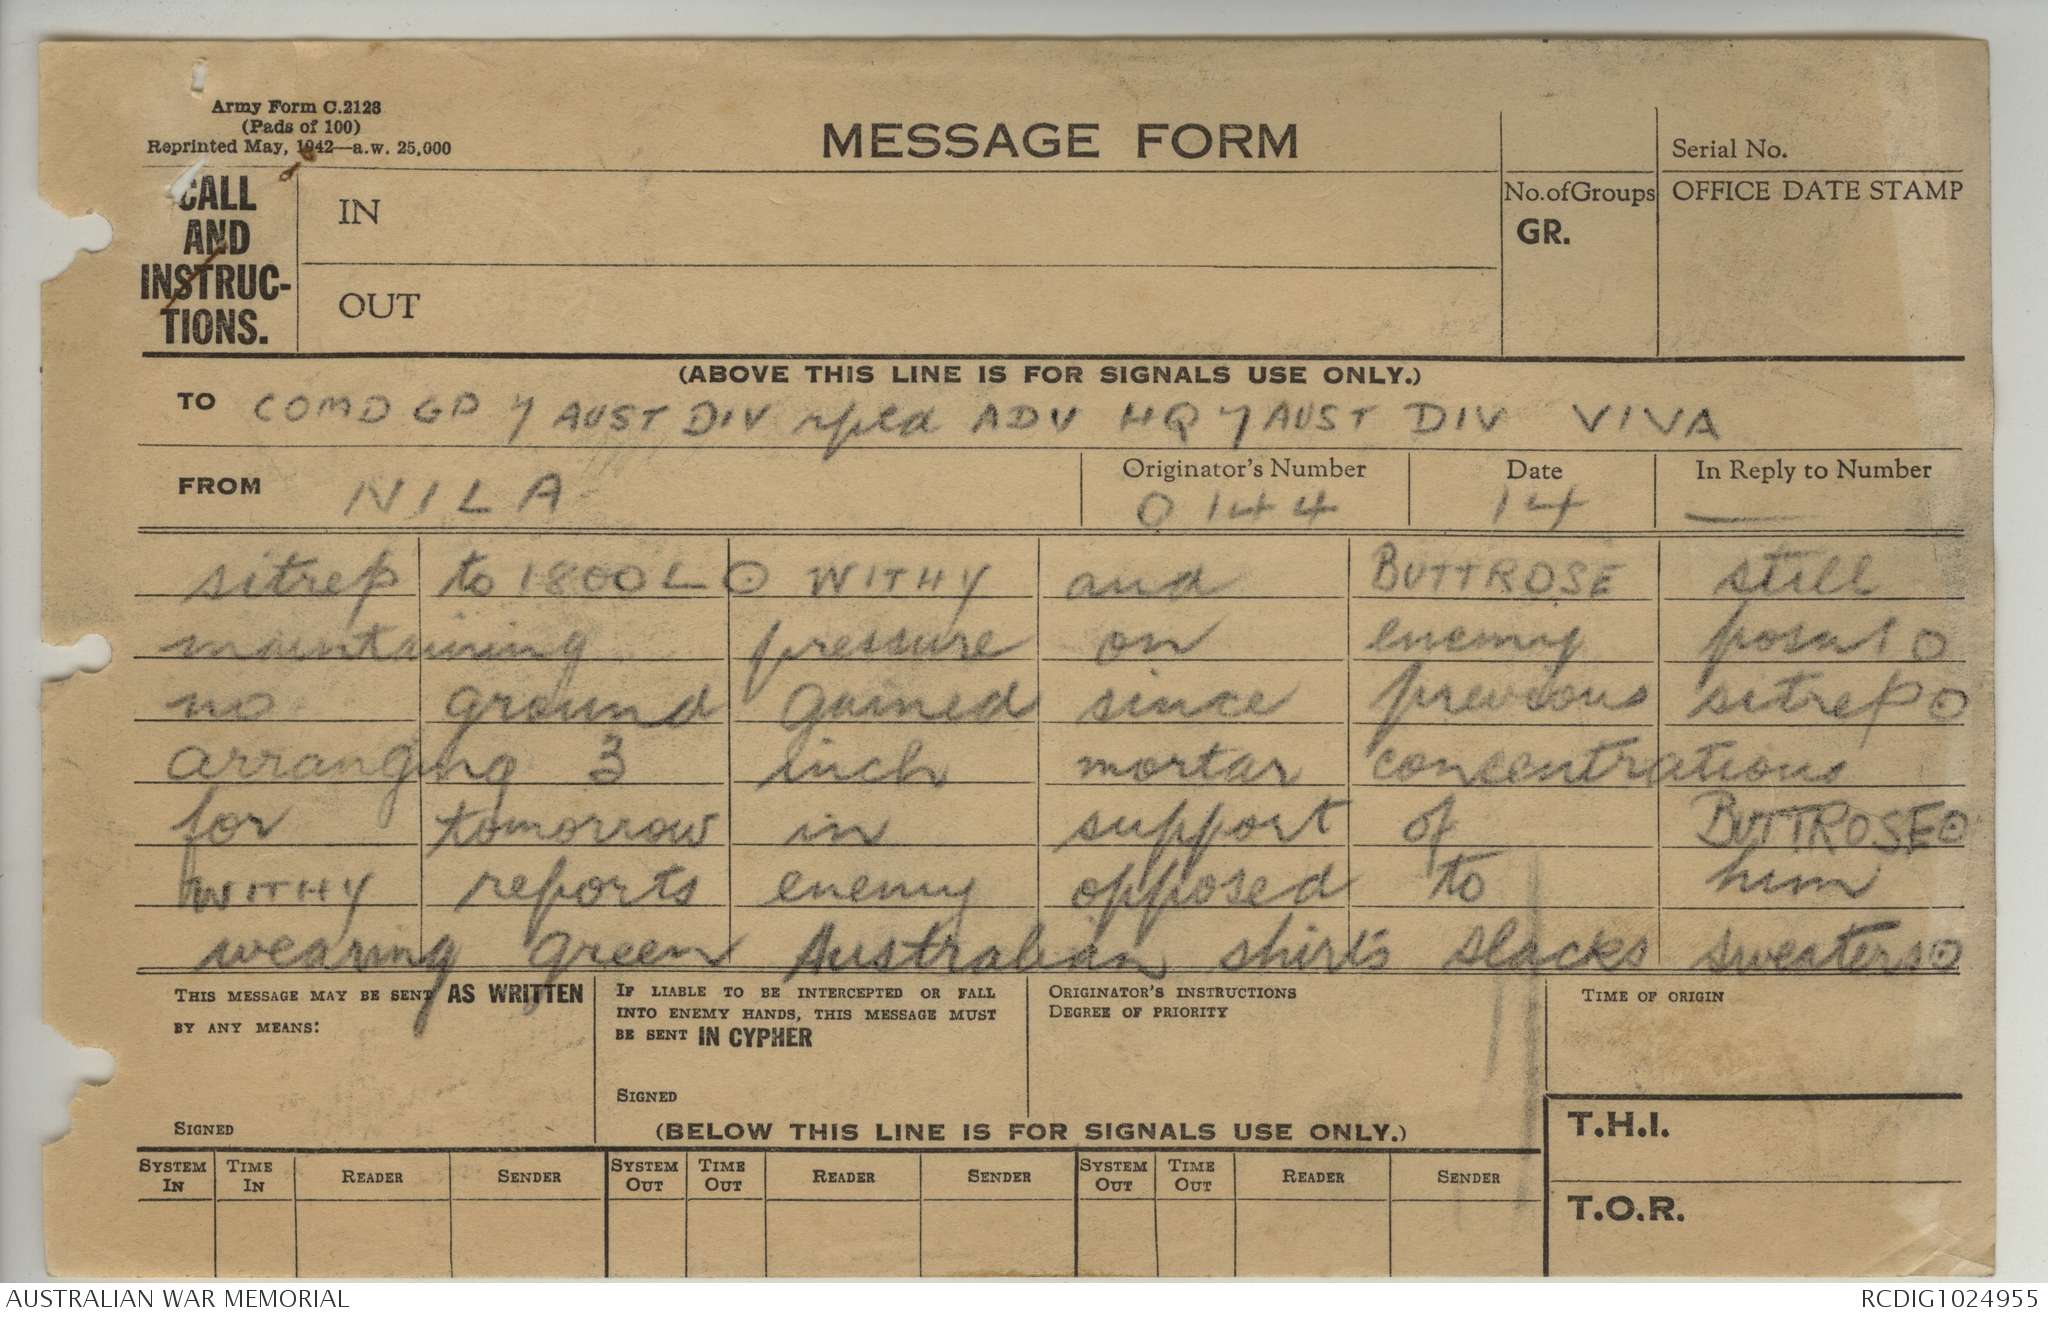 Army Form C.2128
(Pads of 100)
Reprinted May, 1942—a.w. 25,000
MESSAGE FORM
Serial No.
CALL
AND
INSTRUC-
TIONS.
IN
OUT
No. of Groups
GR.
OFFICE DATE STAMP
(ABOVE THIS LINE IS FOR SIGNALS USE ONLY.)
TO COMD GD 7 AUST DIV rptd ADV HQ 7 AUST DIV VIVA
FROM NILA
Originator's Number
0144
Date
14
In Reply to Number
—
sitrep to 1800L ⊙ WITHY and BUTTROSE still
maintaining pressure on enemy posn ⊙
no ground gained since previous sitrep ⊙
arranging 3 inch mortar concentrations
for tomorrow in support of BUTTROSE ⊙
WITHY reports enemy opposed to him
wearing green Australian shirts slacks sweaters ⊙
THIS MESSAGE MAY BE SENT AS WRITTEN
BY ANY MEANS:
SIGNED
IF LIABLE TO BE INTERCEPTED OR FALL
INTO ENEMY HANDS, THIS MESSAGE MUST
BE SENT IN CYPHER
SIGNED
ORIGINATOR'S INSTRUCTIONS
DEGREE OF PRIORITY
TIME OF ORIGIN
(BELOW THIS LINE IS FOR SIGNALS USE ONLY.)
T.H.I.
T.O.R.
SYSTEM IN TIME IN READER SENDER SYSTEM OUT TIME OUT READER SENDER SYSTEM OUT TIME OUT READER SENDER
AUSTRALIAN WAR MEMORIAL
RCDIG1024955